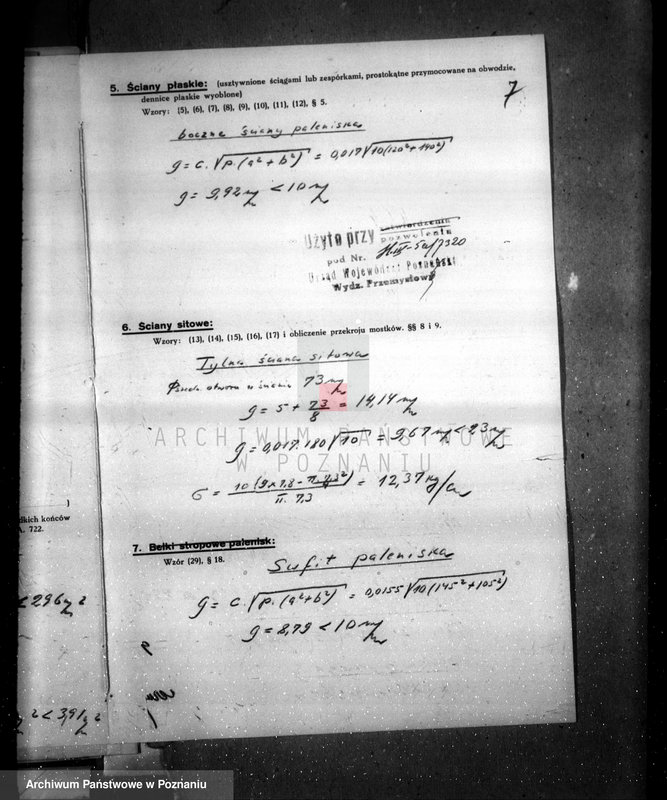 7
5. Ściany płaskie: (usztywnione ściągami lub zespórkami, prostokątne przymocowane na obwodzie,
dennice płaskie wyoblone)
Wzory: (5), (6), (7), (8), (9), (10), (11), (12), § 5.
boczne ściany paleniska
g = c. √p.(a²+b²) = 0,017 √10(120²+140²)
g = 9,92 m/m < 10 m/m
Użyto przy zatwierdzeniu
pozwoleniu
pod Nr.
Urząd Wojewódzki Poznański
Wydz. Przemysłowy
6. Ściany sitowe:
Wzory: (13), (14), (15), (16), (17) i obliczenie przekroju mostków. §§ 8 i 9.
Tylna ściana sitowa
otworu w ścianie 73 m/m
g = 5 + 73/8 = 14,14 m/m
g = 0,017.180 √10 = 9,67 m/m < 23 m/m
ARCHIWUM PAŃSTWOWE
W POZNANIU
π. 7,3 = 12,37 kg/
7. Belki stropowe palenisk:
Wzór (29), § 18.
Sufit paleniska
g = c. √p.(a²+b²) = 0,0155 √10(145²+105²)
g = 8,79 < 10 m/m
)
dkich końców
A. 722.
< 296
² < 3,91
Archiwum Państwowe w Poznaniu